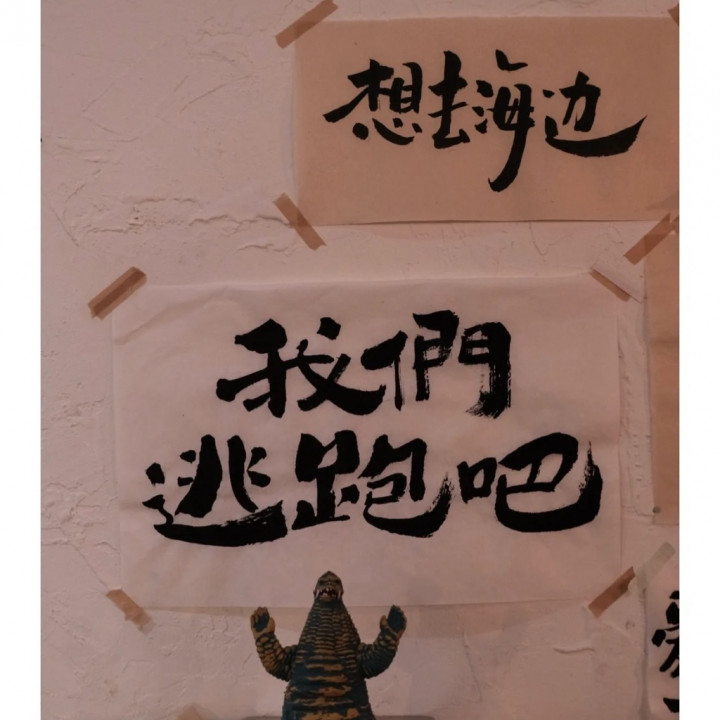 想去海边
我們
逃跑吧